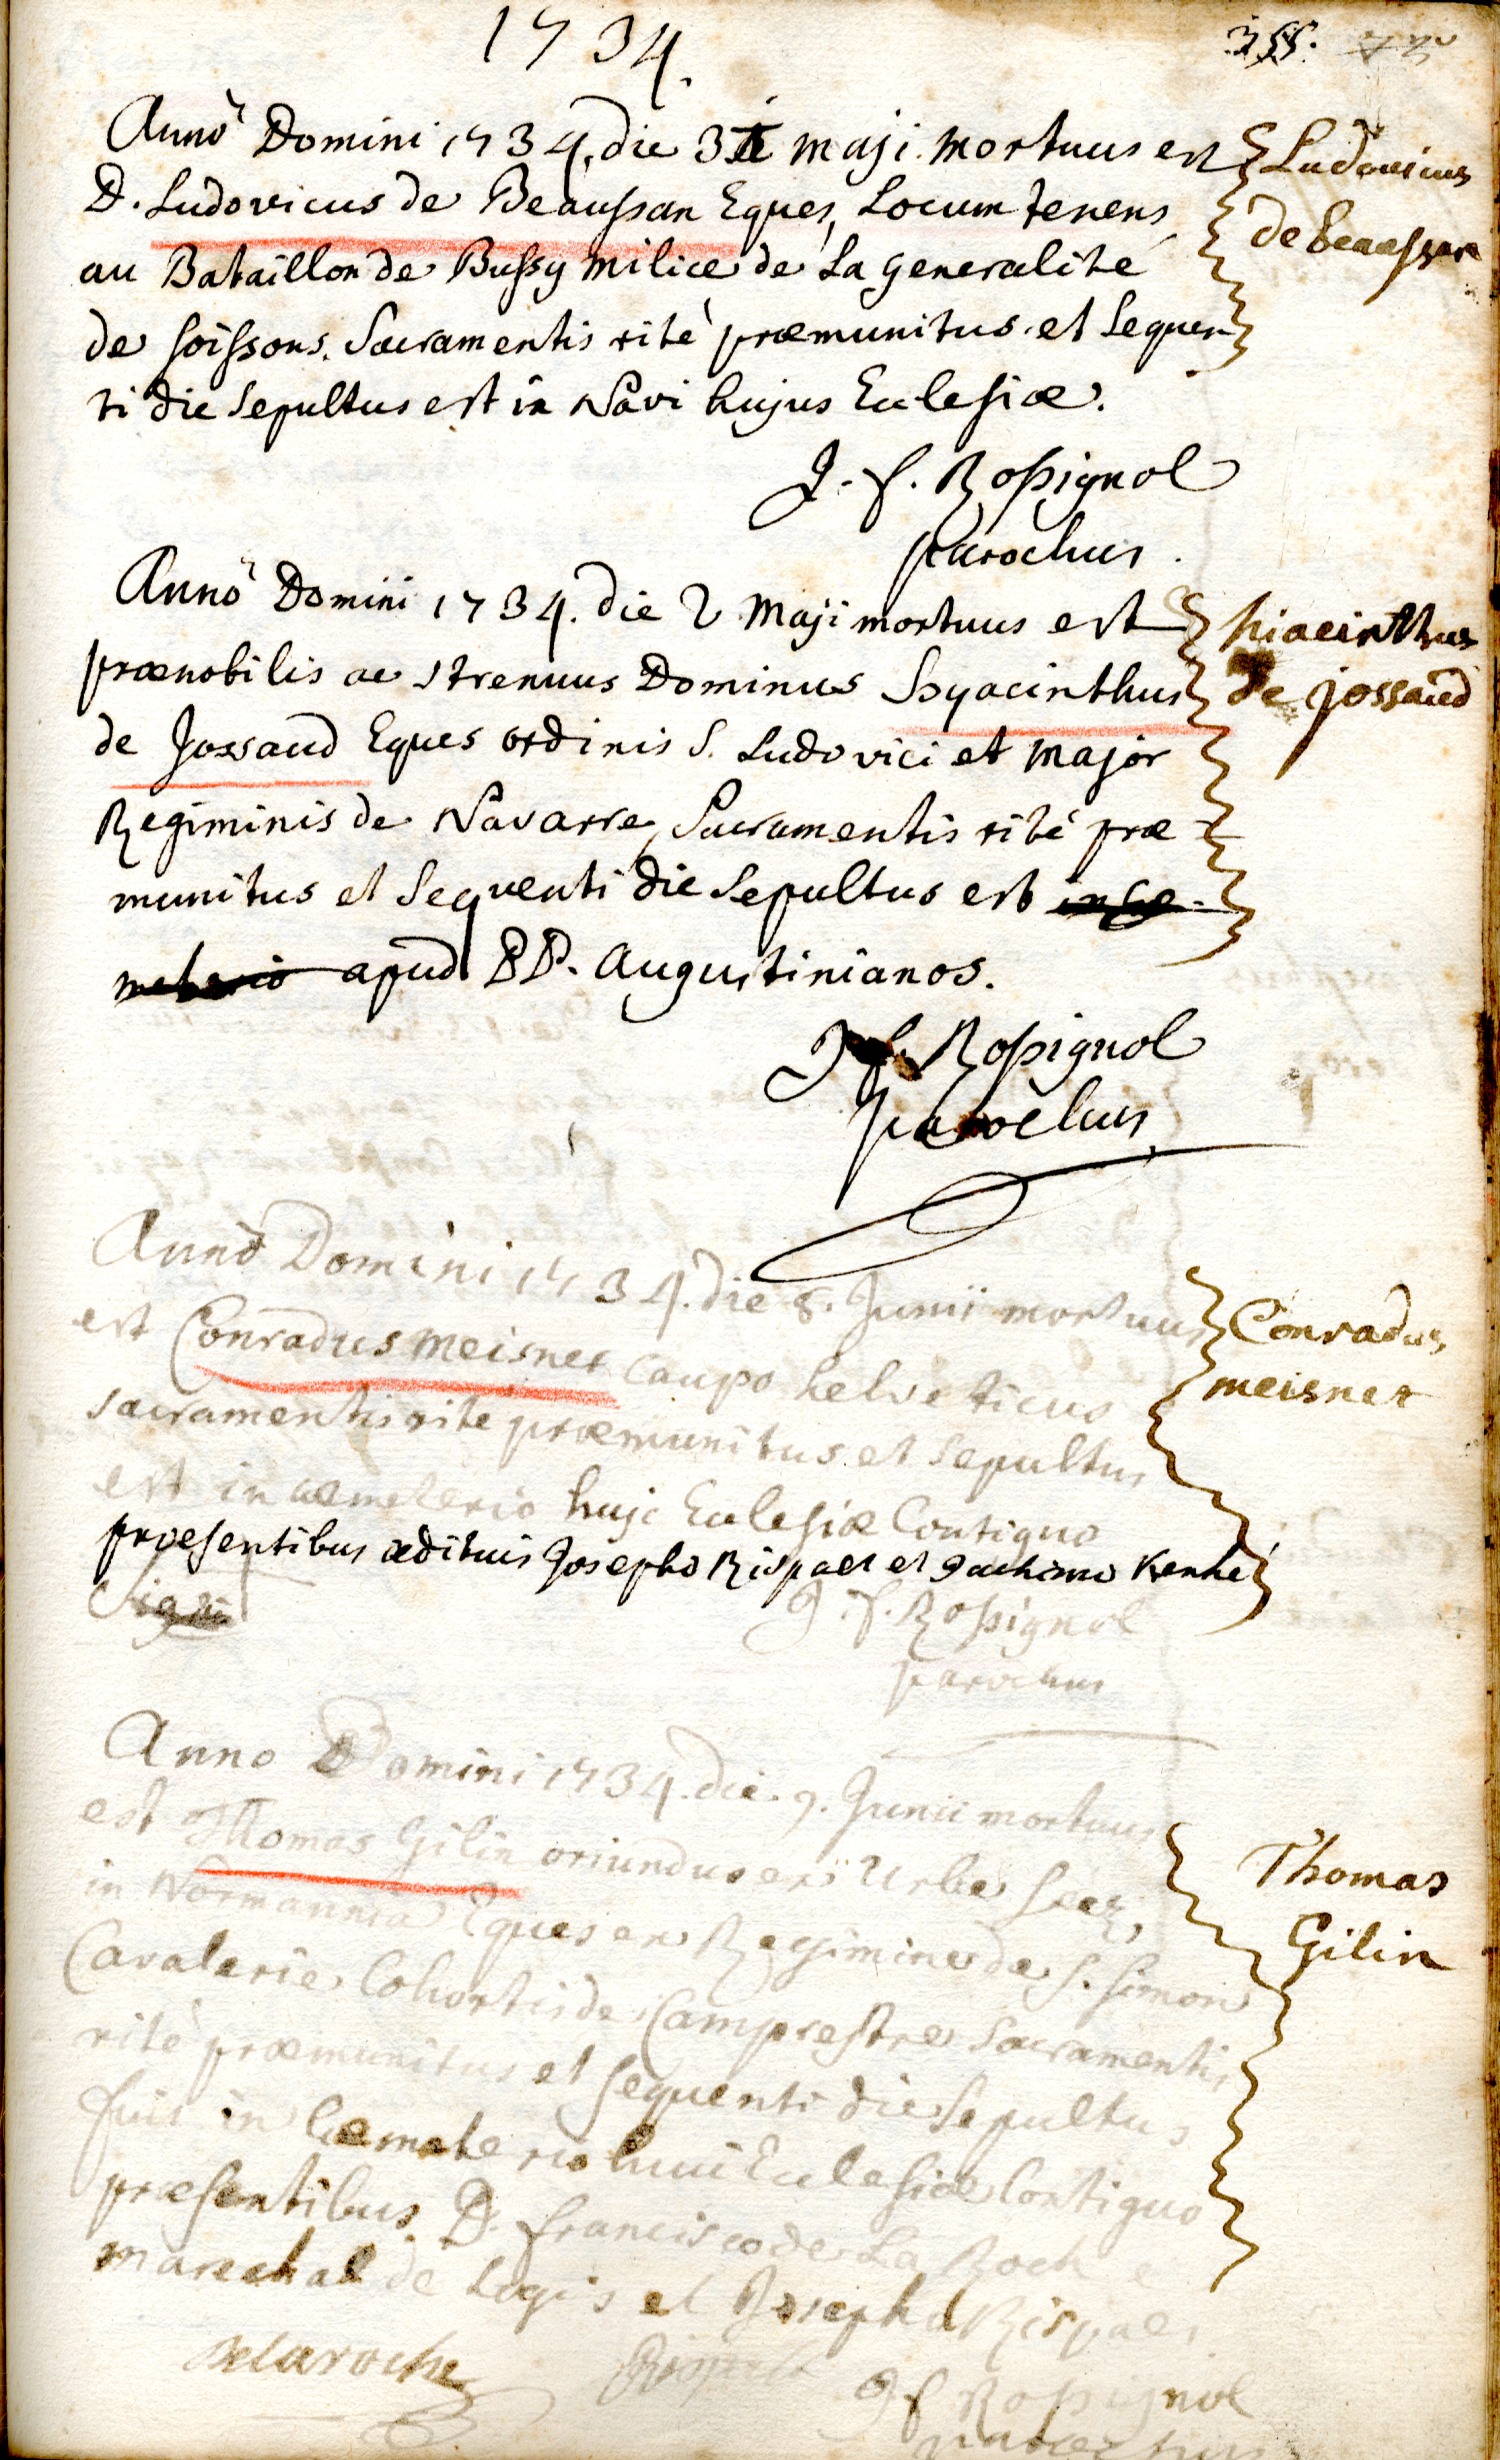 1734.
355.
Anno Domini 1734, die 3 maji mortuus est
D. Ludovicus de Beaussan Eques, Locum tenens
au Bataillon de Bussy milice de La generalité
de soissons. Sacramentis ritè præmunitus et sequen
ti die sepultus est in Navi hujus Ecclesiæ.
Ludovicus
de beaussan
J. f. Rossignol
parochus.
Anno Domini 1734. die 2 maji mortuus est
prænobilis ac strenuus Dominus Hyacinthus
de Jossaud Eques ordinis S. Ludovici et major
Regiminis de Navarre, Sacramentis ritè præ
munitus et sequenti die sepultus est in cæ-
meterio apud PP. Augustinianos.
hiacinthus
de jossaud
J. f. Rossignol
parochus
Anno Domini 1734. die 8. Junii mortuus
est Conradus meisner caupo helveticus
sacramentis rite præmunitus et sepultus
est in cæmeterio hujc Ecclesiæ Contiguo
præsentibus ædituis Josepho Rispael et Kenké
Conradus
meisner
J. f. Rossignol
parochus
Anno Domini 1734. die. 9. Junii mortuus
est Thomas Gilin oriundus ex Urbe Seez,
in Normannia Eques ex Regimine de S. Simon
Cavalerie Cohortis de Campcestre Sacramentis
ritè præmunitus et sequenti die sepultus
fuit in Cæmeterio huic Ecclesiæ Contiguo
præsentibus D. francisco de La Roche
marechal de Logis et Josepho Rispael
Thomas
Gilin
Delaroche
Rispael
J f Rossignol
parochus